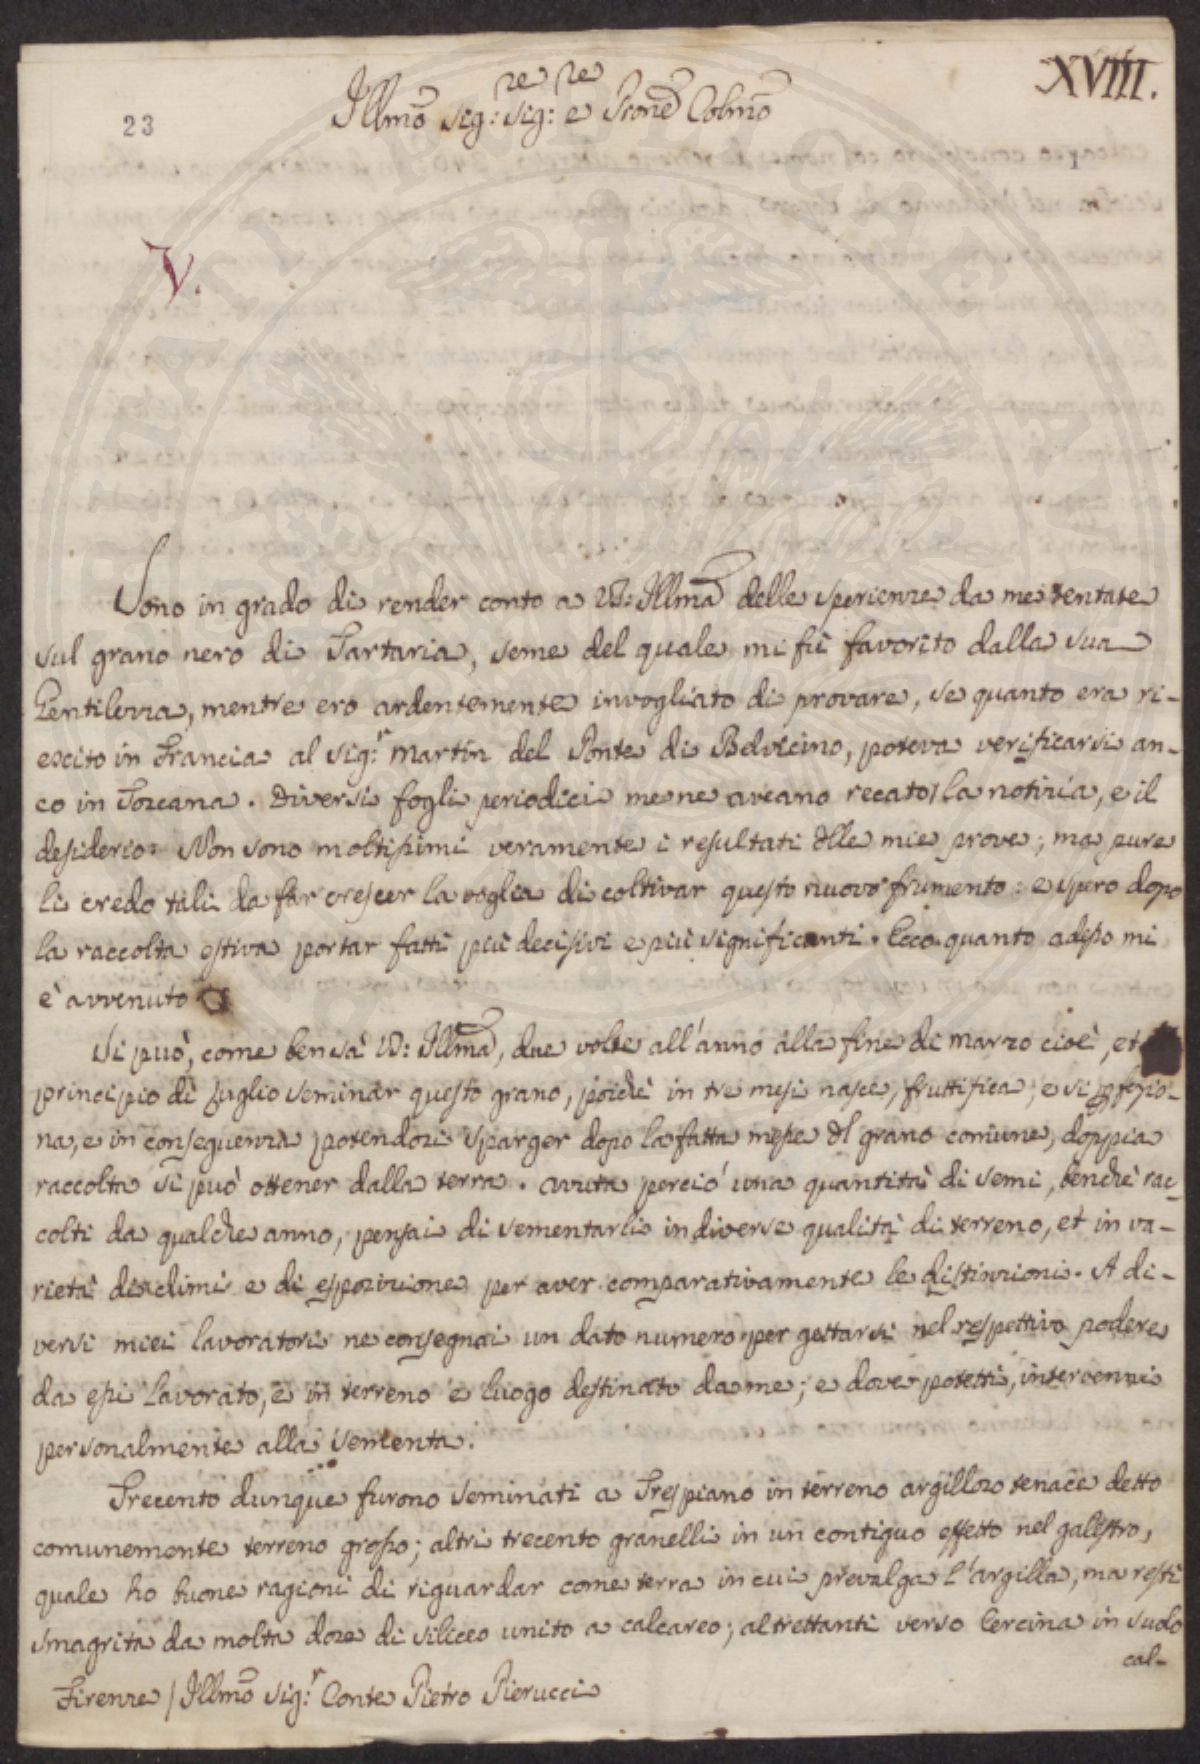 XVIII.
23
Illmo Sig:re Sig:re e Pron Colmo
V.
Sono in grado di render conto a VS: Illma delle sperienze da me tentate
sul grano nero di Tartaria, seme del quale mi fù favorito dalla sua
Gentilezza, mentre ero ardentemente invogliato di provare, se quanto era ri-
escito in Francia al Sig:r Martin del Ponte di Belvicino, poteva verificarsi an-
co in Toscana. Diversi fogli periodici me ne aveano recato la notizia, e il
desiderio. Non sono moltissimi veramente i resultati dlle mie prove; ma pure
li credo tali da far crescer la voglia di coltivar questo nuovo frumento: e spero dopo
la raccolta estiva portar fatti più decisivi e più significanti. Ecco quanto adesso mi
è avvenuto
Si può, come ben sà VS: Illma, due volte all'anno alla fine di Marzo cioè, et
principio di Luglio seminar questo grano, poichè in tre mesi nasce, fruttifica, e si pfezio-
na, e in conseguenza potendosi sparger dopo la fatta messe dl grano comune, doppia
raccolta si può ottener dalla terra. Avuta perciò una quantità di semi, benchè rac-
colti da qualche anno, pensai di sementarli in diverse qualità di terreno, et in va-
rietà di climi e di esposizione per aver comparativamente le distinzioni. A di-
versi miei lavoratori ne consegnai un dato numero per gettarsi nel respettivo podere
da essi lavorato, e in terreno e luogo destinato da me; e dove potetti, intervenni
personalmente alla sementa.
Trecento dunque furono seminati a Trespiano in terreno argilloso tenace detto
comunemente terreno grosso; altri trecento granelli in un contiguo effetto nel galestro,
quale ho buone ragioni di riguardar come terra in cui prevalga l'argilla, ma resti
smagrita da molta dose di siliceo unito a calcareo; altrettanti verso Cercina in suolo
cal-
Firenze / Illmo Sig:r Conte Pietro Pierucci